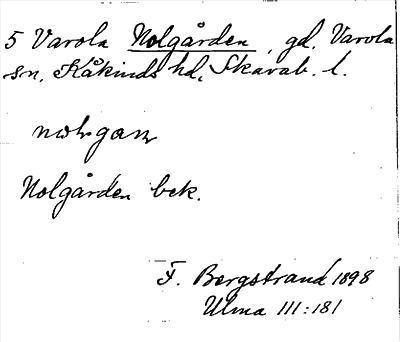 5 Varola Nolgården, gd. Varola
sn, Kåkinds hd, Skarab. l.
Nolgården bek.
F. Bergstrand 1898
Ulma 111:181